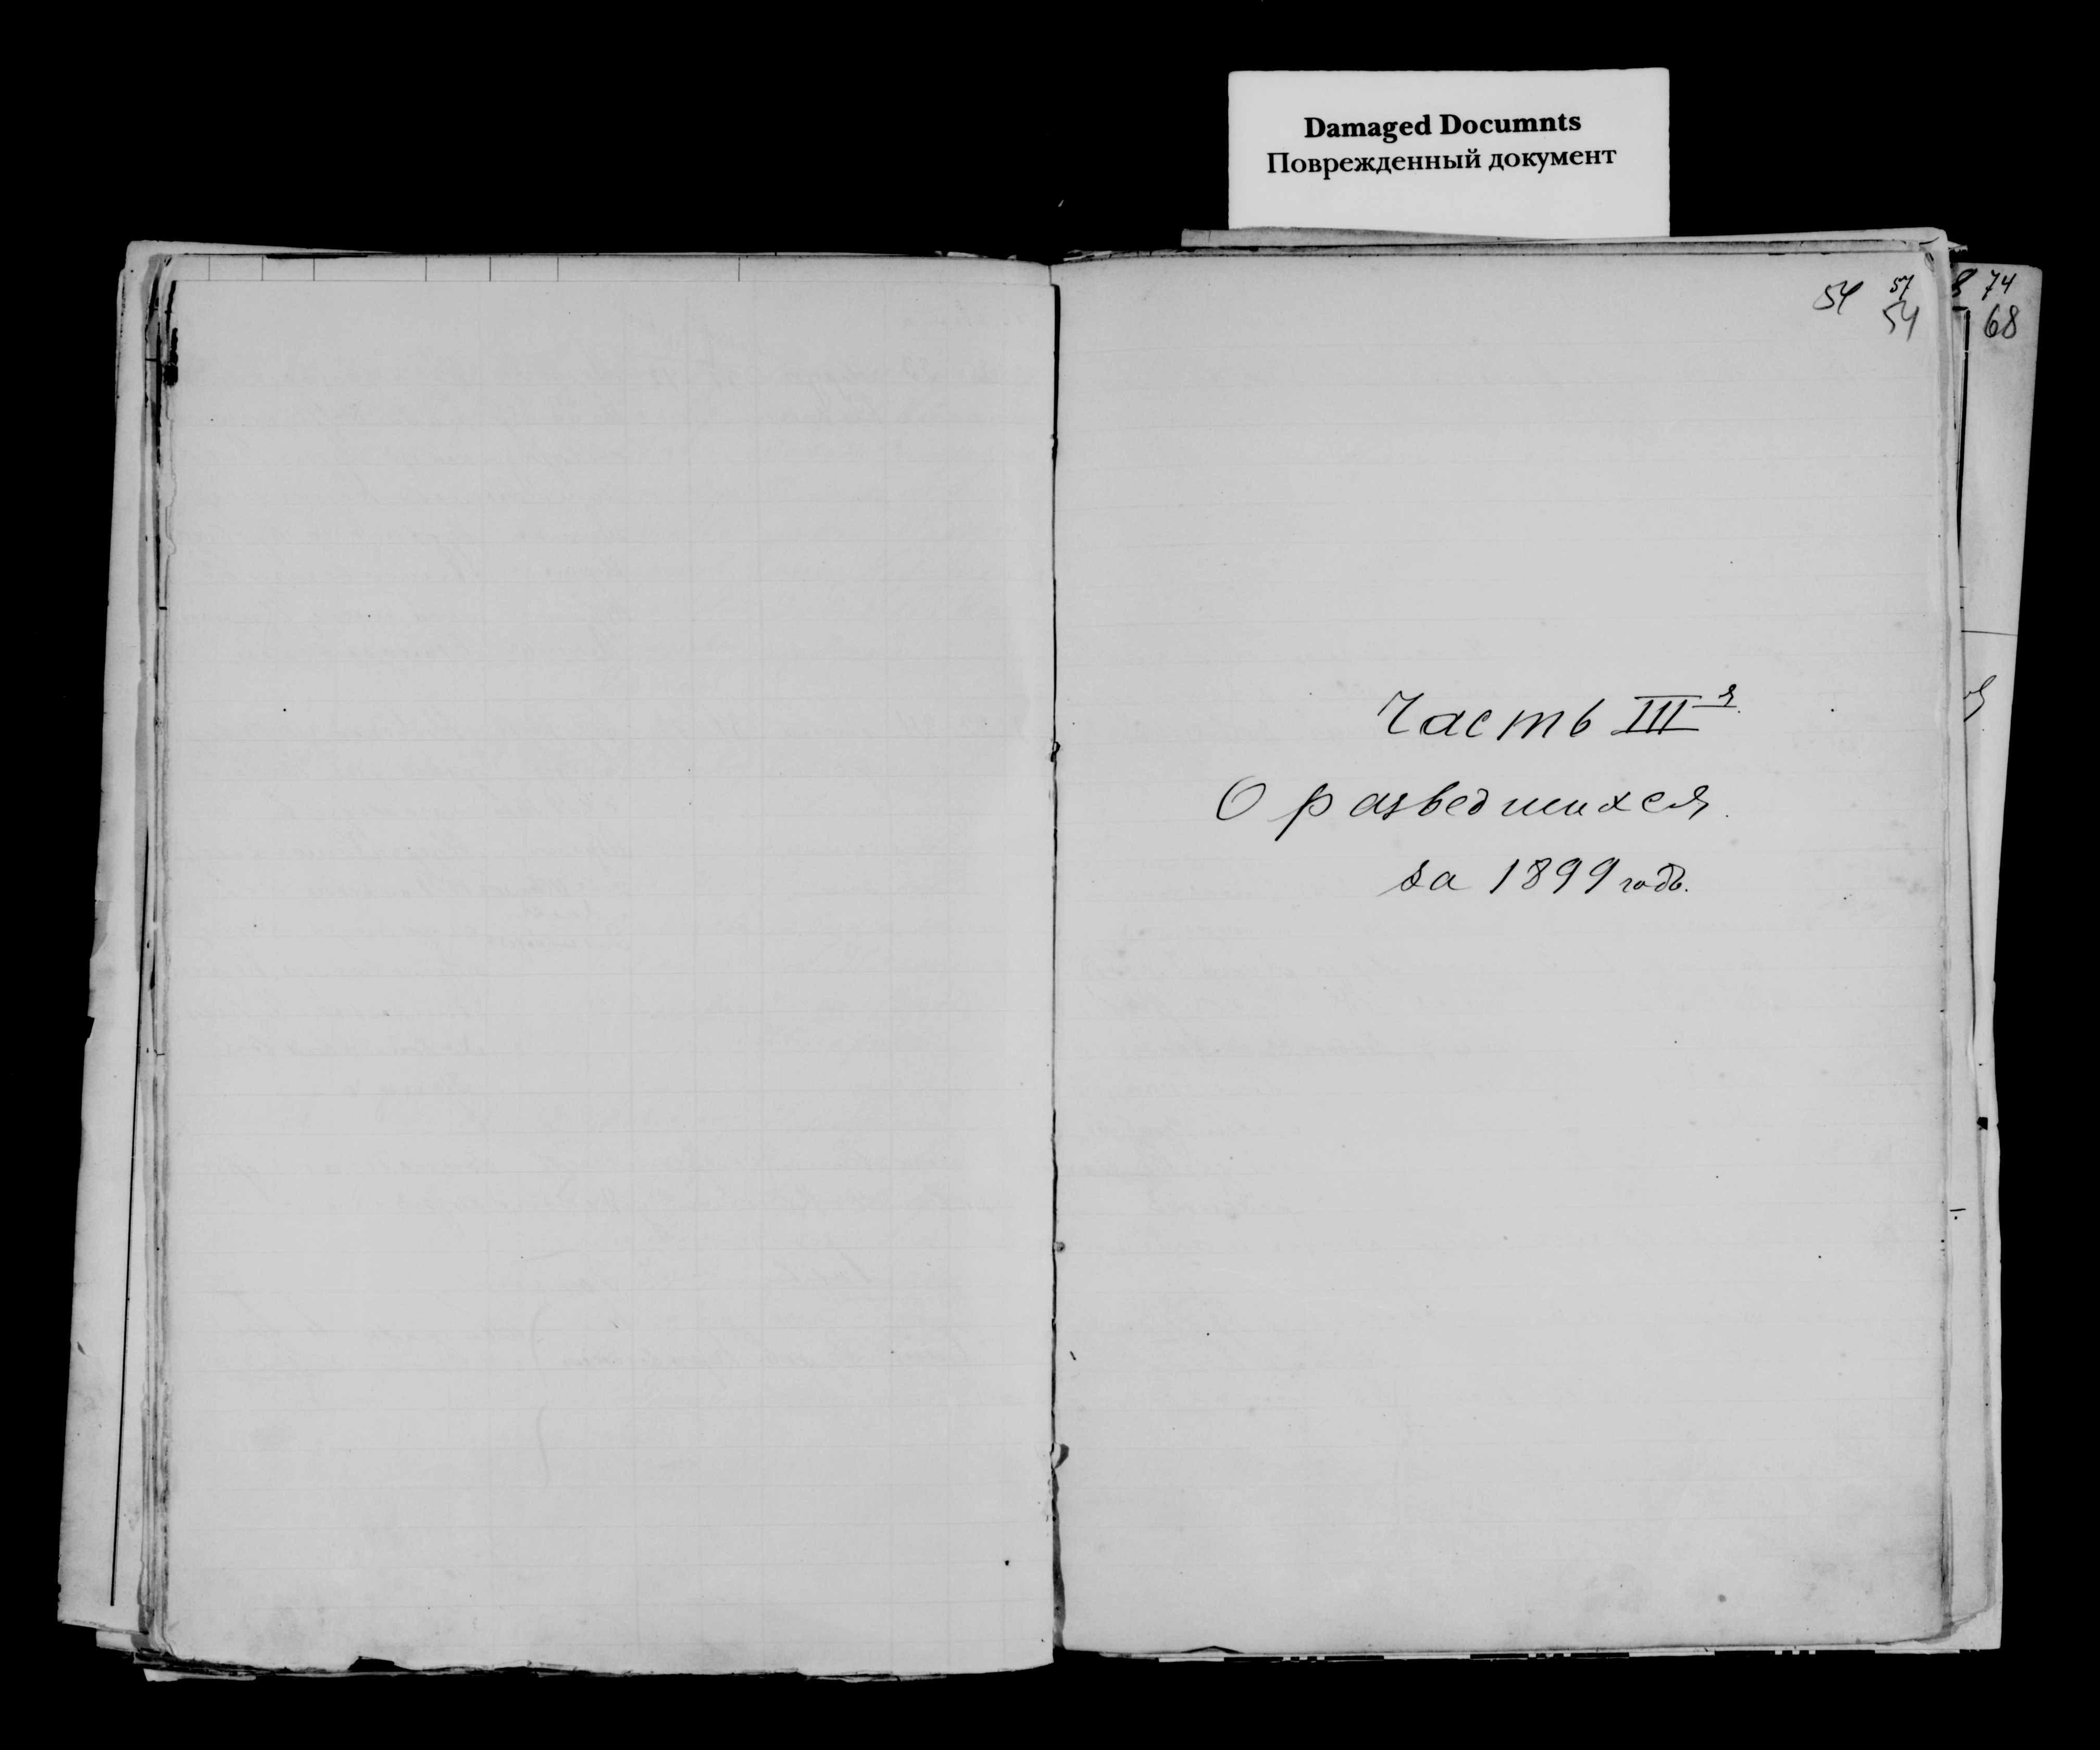 Damaged Documnts
Поврежденный документ
54 57
54
74
68
Часть III я
О разведшихся.
за 1899 годъ.